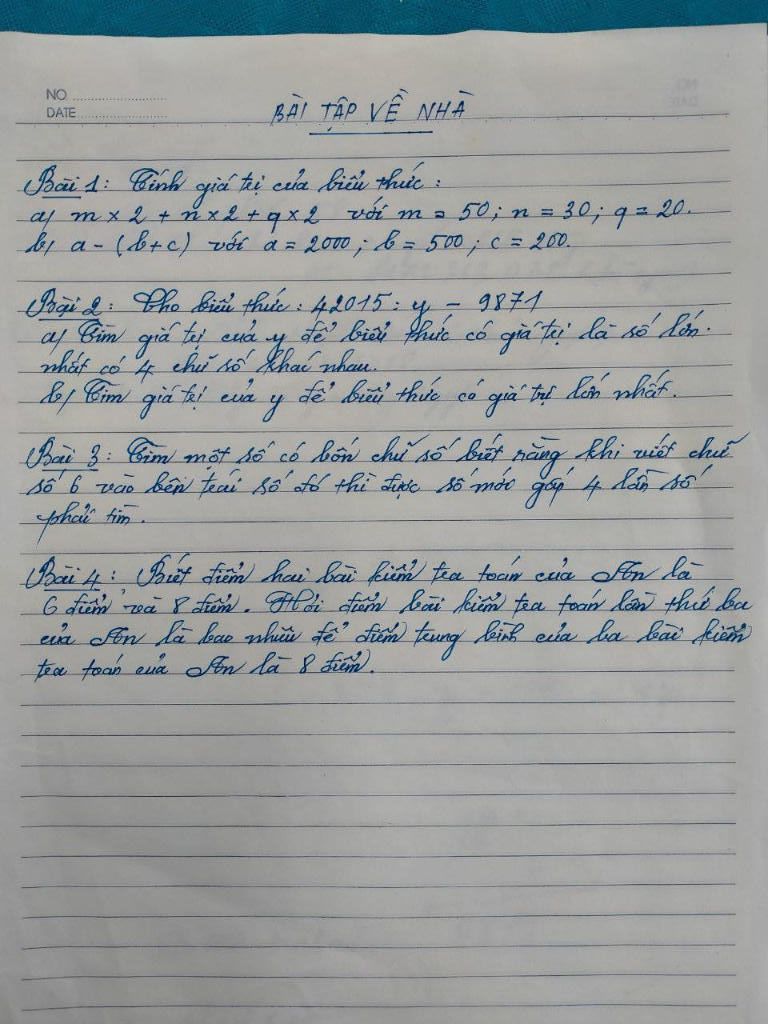 NO
DATE
BÀI TẬP VỀ NHÀ
Bài 1: Tính giá trị của biểu thức:
a/ m × 2 + n × 2 + q × 2 với m = 50; n = 30; q = 20.
b/ a - (b+c) với a = 2000; b = 500; c = 200.
Bài 2: Cho biểu thức: 42015 : y - 9871
a/ Tìm giá trị của y để biểu thức có giá trị là số lớn
nhất có 4 chữ số khác nhau.
b/ Tìm giá trị của y để biểu thức có giá trị lớn nhất.
Bài 3: Tìm một số có bốn chữ số biết rằng khi viết chữ
số 6 vào bên trái số đó thì được số mới gấp 4 lần số
phải tìm.
Bài 4: Biết điểm hai bài kiểm tra toán của An là
6 điểm và 8 điểm. Hỏi điểm bài kiểm tra toán lần thứ ba
của An là bao nhiêu để điểm trung bình của ba bài kiểm
tra toán của An là 8 điểm.